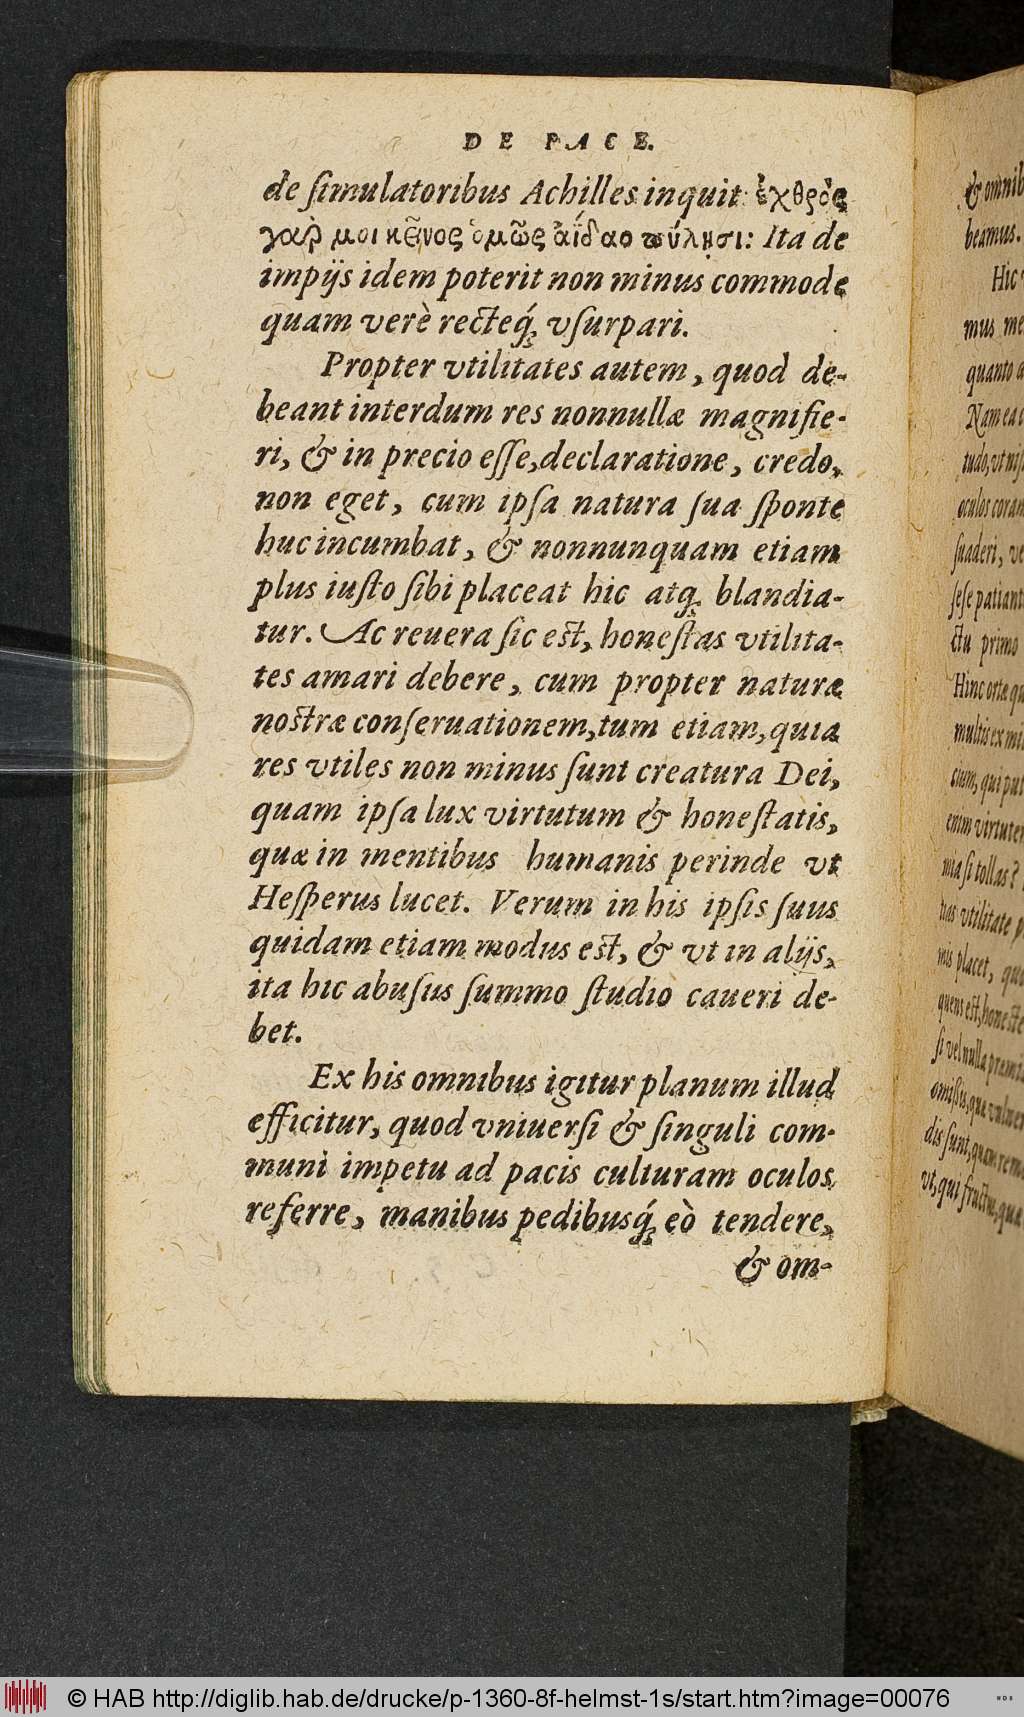 DE PACE.
de ſimulatoribus Achilles inquit: ἐχθρὸς
γὰρ μοι κε͂νος ὁμῶς ἀΐδαο πύλησι: Ita de
impijs idem poterit non minus commode
quam verè rectéq́ꝫ vſurpari.
Propter vtilitates autem, quod de-
beant interdum res nonnullæ magnifie-
ri, & in precio eſſe, declaratione, credo,
non eget, cum ipſa natura ſua ſponte
huc incumbat, & nonnunquam etiam
plus iuſto ſibi placeat hic atqꝫ blandia-
tur. Ac reuera ſic est, honeſtas vtilita-
tes amari debere, cum propter naturæ
nostræ conſeruationem, tum etiam, quia
res vtiles non minus ſunt creatura Dei,
quam ipſa lux virtutum & honeſtatis,
quæ in mentibus humanis perinde vt
Heſperus lucet. Verum in his ipſis ſuus
quidam etiam modus est, & vt in alijs,
ita hic abuſus ſummo ſtudio caueri de-
bet.
Ex his omnibus igitur planum illud
efficitur, quod vniuerſi & ſinguli com-
muni impetu ad pacis culturam oculos
referre, manibus pedibusq́ꝫ eò tendere,
& om-
& omnib
beamus.
Hic
mus me
quanto a
Nam ea
tudo, vt niſ
oculos coram
ſuaderi, ve
ſeſe patiant
ctu primo
Hinc ortæ qu
multis ex mi
cium, qui put
enim virtutem
mia ſi tollas?
has vtilitate p
mis placet, quo
quens est, honeste
ſi vel nulla præmi
omißis, quæ vulner
dis ſunt, quam rem
vt, qui fructus, quæ
© HAB http://diglib.hab.de/drucke/p-1360-8f-helmst-1s/start.htm?image=00076